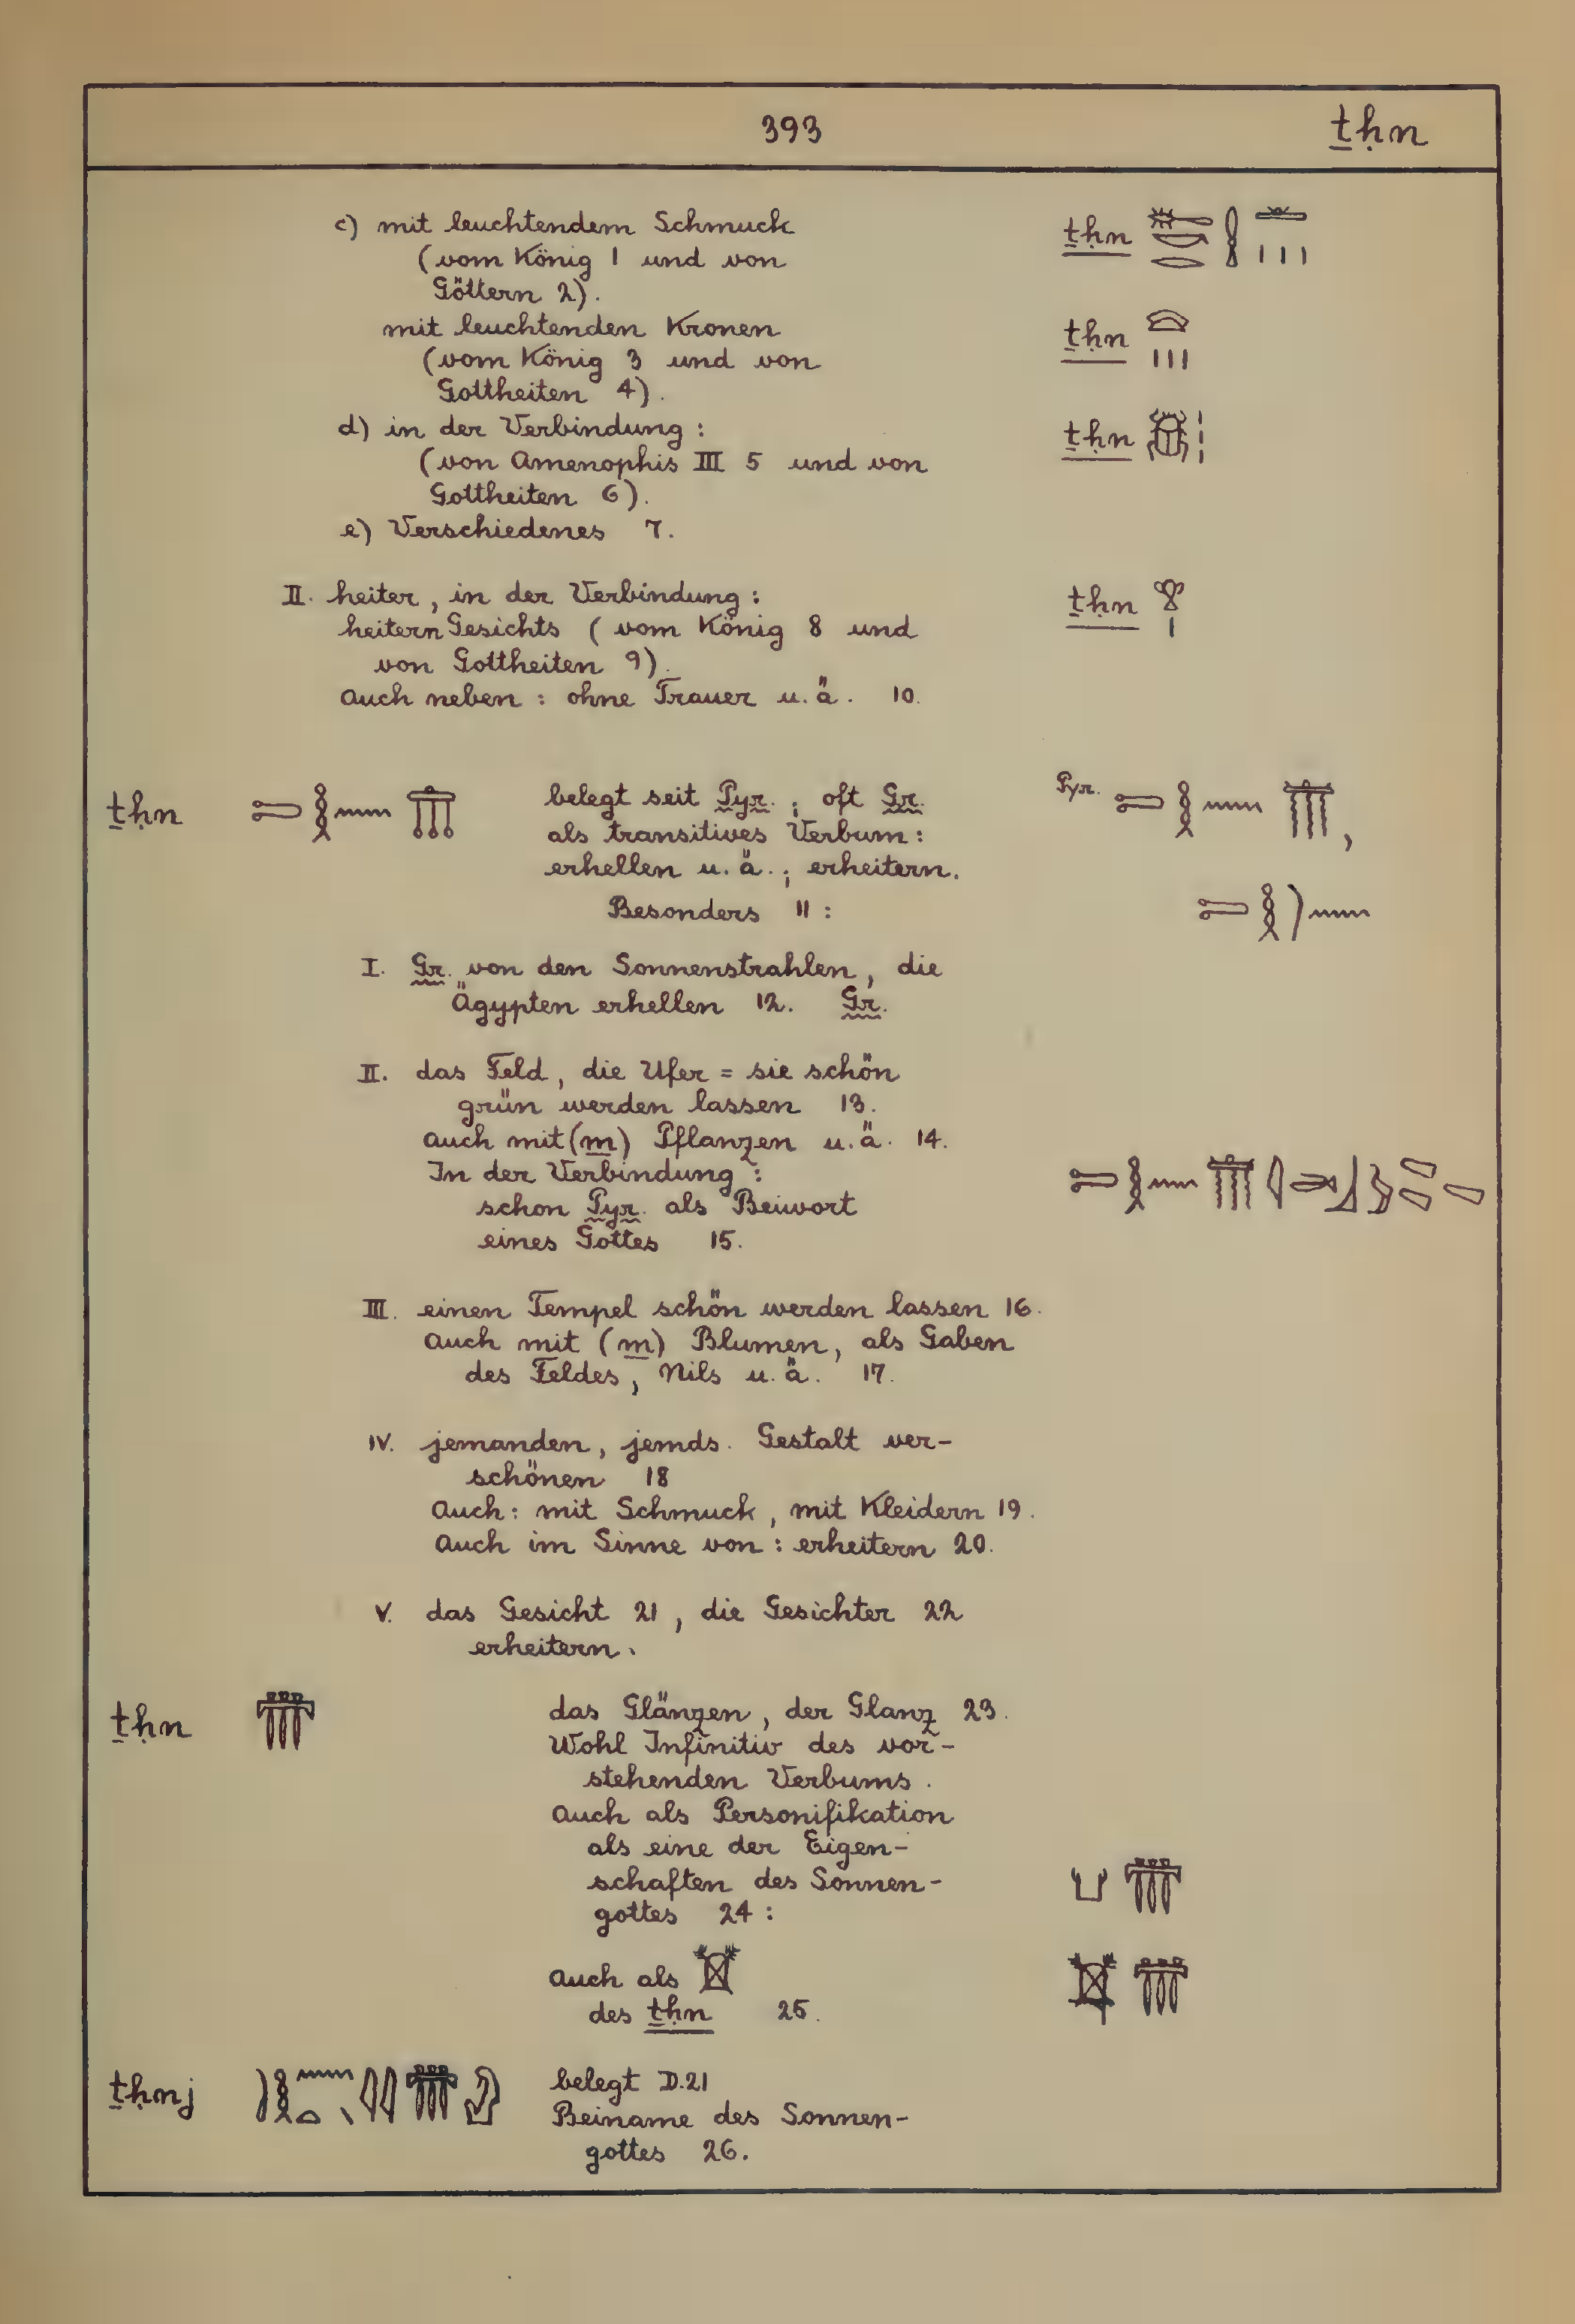 393 ṯḥn
c) mit leuchtendem Schmuck ṯḥn
(vom König 1 und von
Göttern 2).
mit leuchtenden Kronen ṯḥn
(vom König 3 und von
Gottheiten 4).
d) in der Verbindung: ṯḥn
(von Amenophis III 5 und von
Gottheiten 6).
e) Verschiedenes 7.
II. heiter, in der Verbindung: ṯḥn
heitern Gesichts (vom König 8 und
von Gottheiten 9).
auch neben: ohne Trauer u. ä. 10.
ṯḥn belegt seit Pyr.; oft Gr. Pyr.
als transitives Verbum:
erhellen u. ä.; erheitern.
Besonders 11:
I. Gr. von den Sonnenstrahlen, die
Ägypten erhellen 12. Gr.
II. das Feld, die Ufer = sie schön
grün werden lassen 13.
auch mit (m) Pflanzen u. ä. 14.
In der Verbindung:
schon Pyr. als Beiwort
eines Gottes 15.
III. einen Tempel schön werden lassen 16.
auch mit (m) Blumen, als Gaben
des Feldes, Nils u. ä. 17.
IV. jemanden, jemds. Gestalt ver-
schönen 18
auch: mit Schmuck, mit Kleidern 19.
auch im Sinne von: erheitern 20.
V. das Gesicht 21, die Gesichter 22
erheitern.
ṯḥn das Glänzen, der Glanz 23.
Wohl Infinitiv des vor-
stehenden Verbums.
auch als Personifikation
als eine der Eigen-
schaften des Sonnen-
gottes 24:
auch als
des ṯḥn 25.
ṯḥnj belegt D.21
Beiname des Sonnen-
gottes 26.